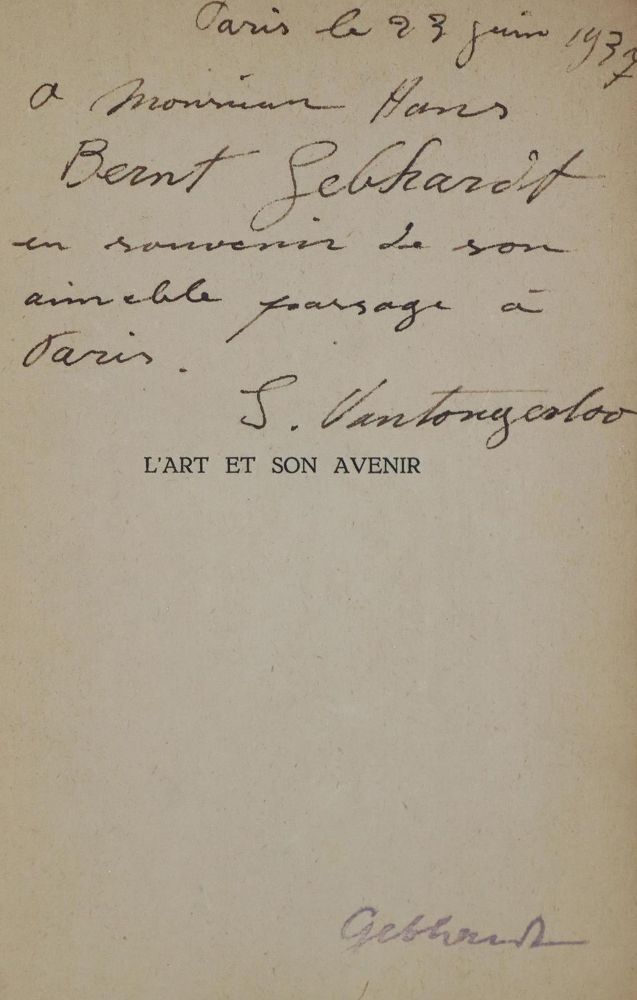 Paris le 23 juin 1937
a Monsieur Hans
Bernt Gebhardt
en souvenir de son
aimable passage à
Paris.
G. Vantongerloo
L'ART ET SON AVENIR
Gebhardt